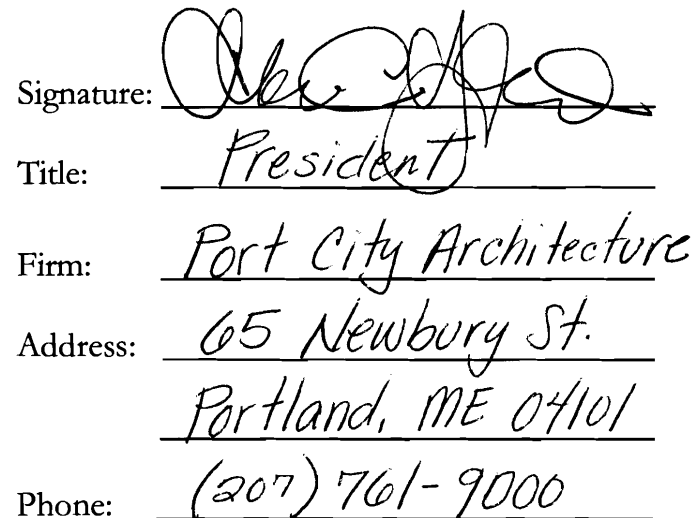 Signature:
Title: President
Firm: Port City Architecture
Address: 65 Newbury St.
Portland, ME 04101
Phone: (207) 761-9000